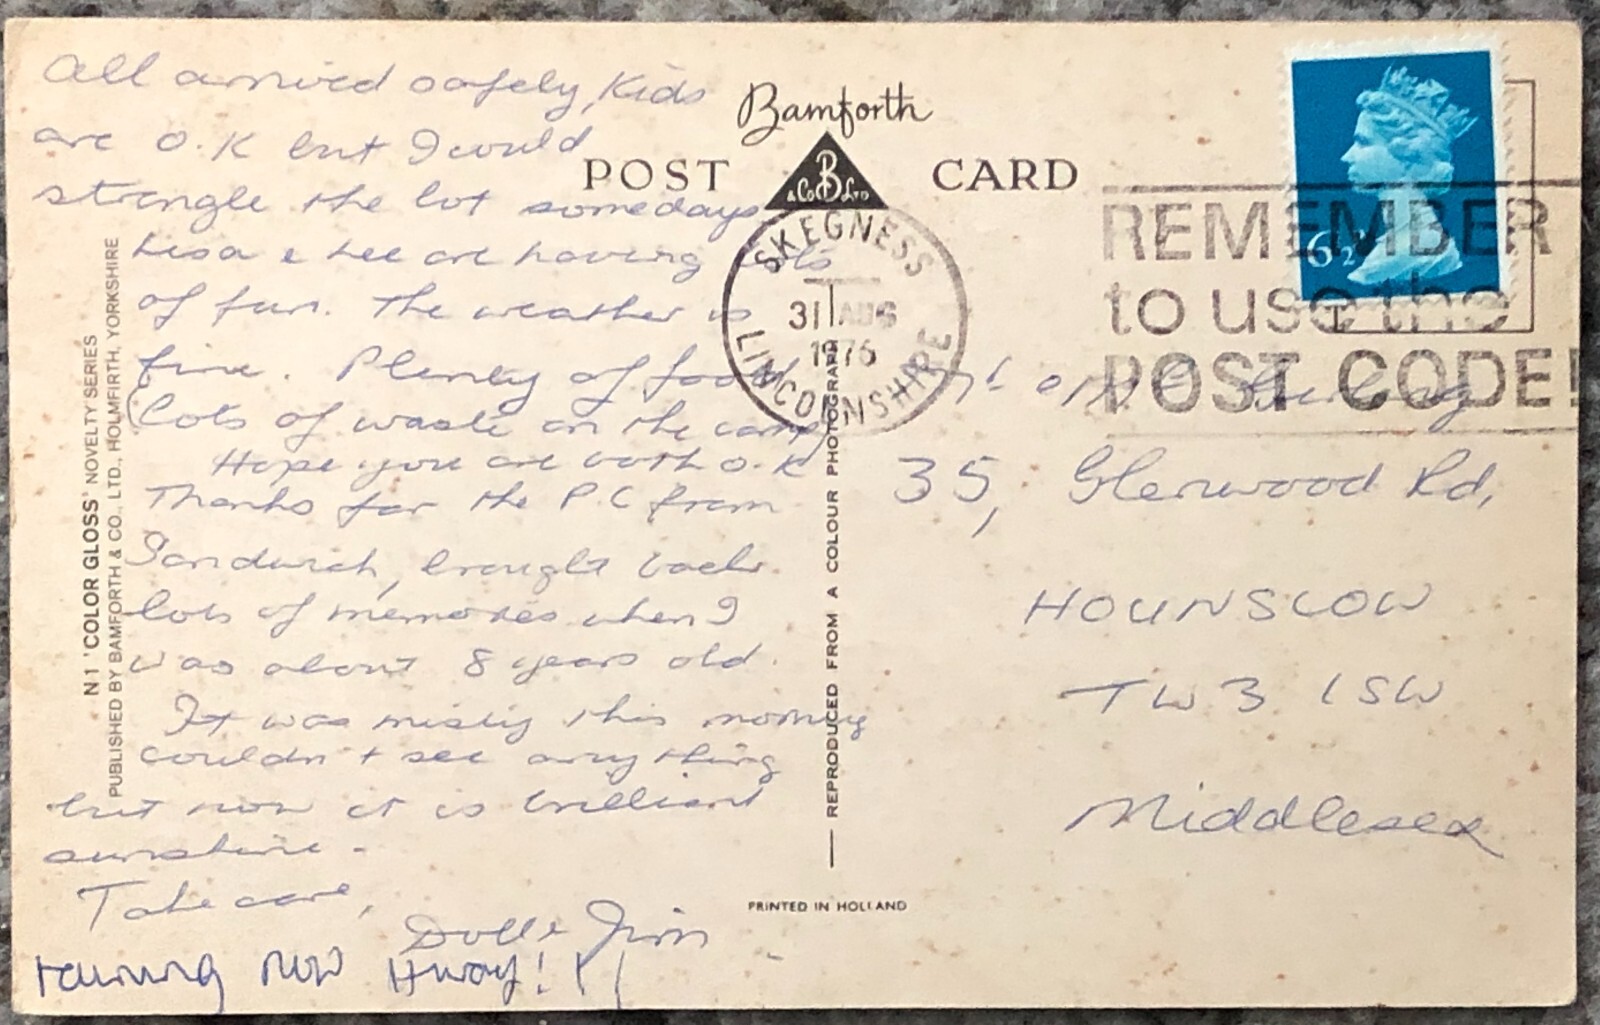 All arrived safely, Kids
are O.K but I could
strangle the lot somedays
Lisa & Lee are having lots
of fun. The weather is
fine. Plenty of food
(lots of waste on the camp
Hope you are both O.K
Thanks for the P.C from
Sandwich, brought back
lots of memories when I
was about 8 years old.
It was misty this morning
couldn't see anything
but now it is brilliant
sunshine.
Take care,
Jim
raining now
N1 'COLOR GLOSS' NOVELTY SERIES
PUBLISHED BY BAMFORTH & CO., LTD., HOLMFIRTH, YORKSHIRE
Bamforth
B
& Co Ltd
POST CARD
SKEGNESS
31 AUG
1976
LINCOLNSHIRE
REMEMBER
to use the
POST CODE!
6½P
REPRODUCED FROM A COLOUR PHOTOGRAPH
PRINTED IN HOLLAND
35, Glenwood Rd,
HOUNSLOW
TW3 1SW
Middlesex